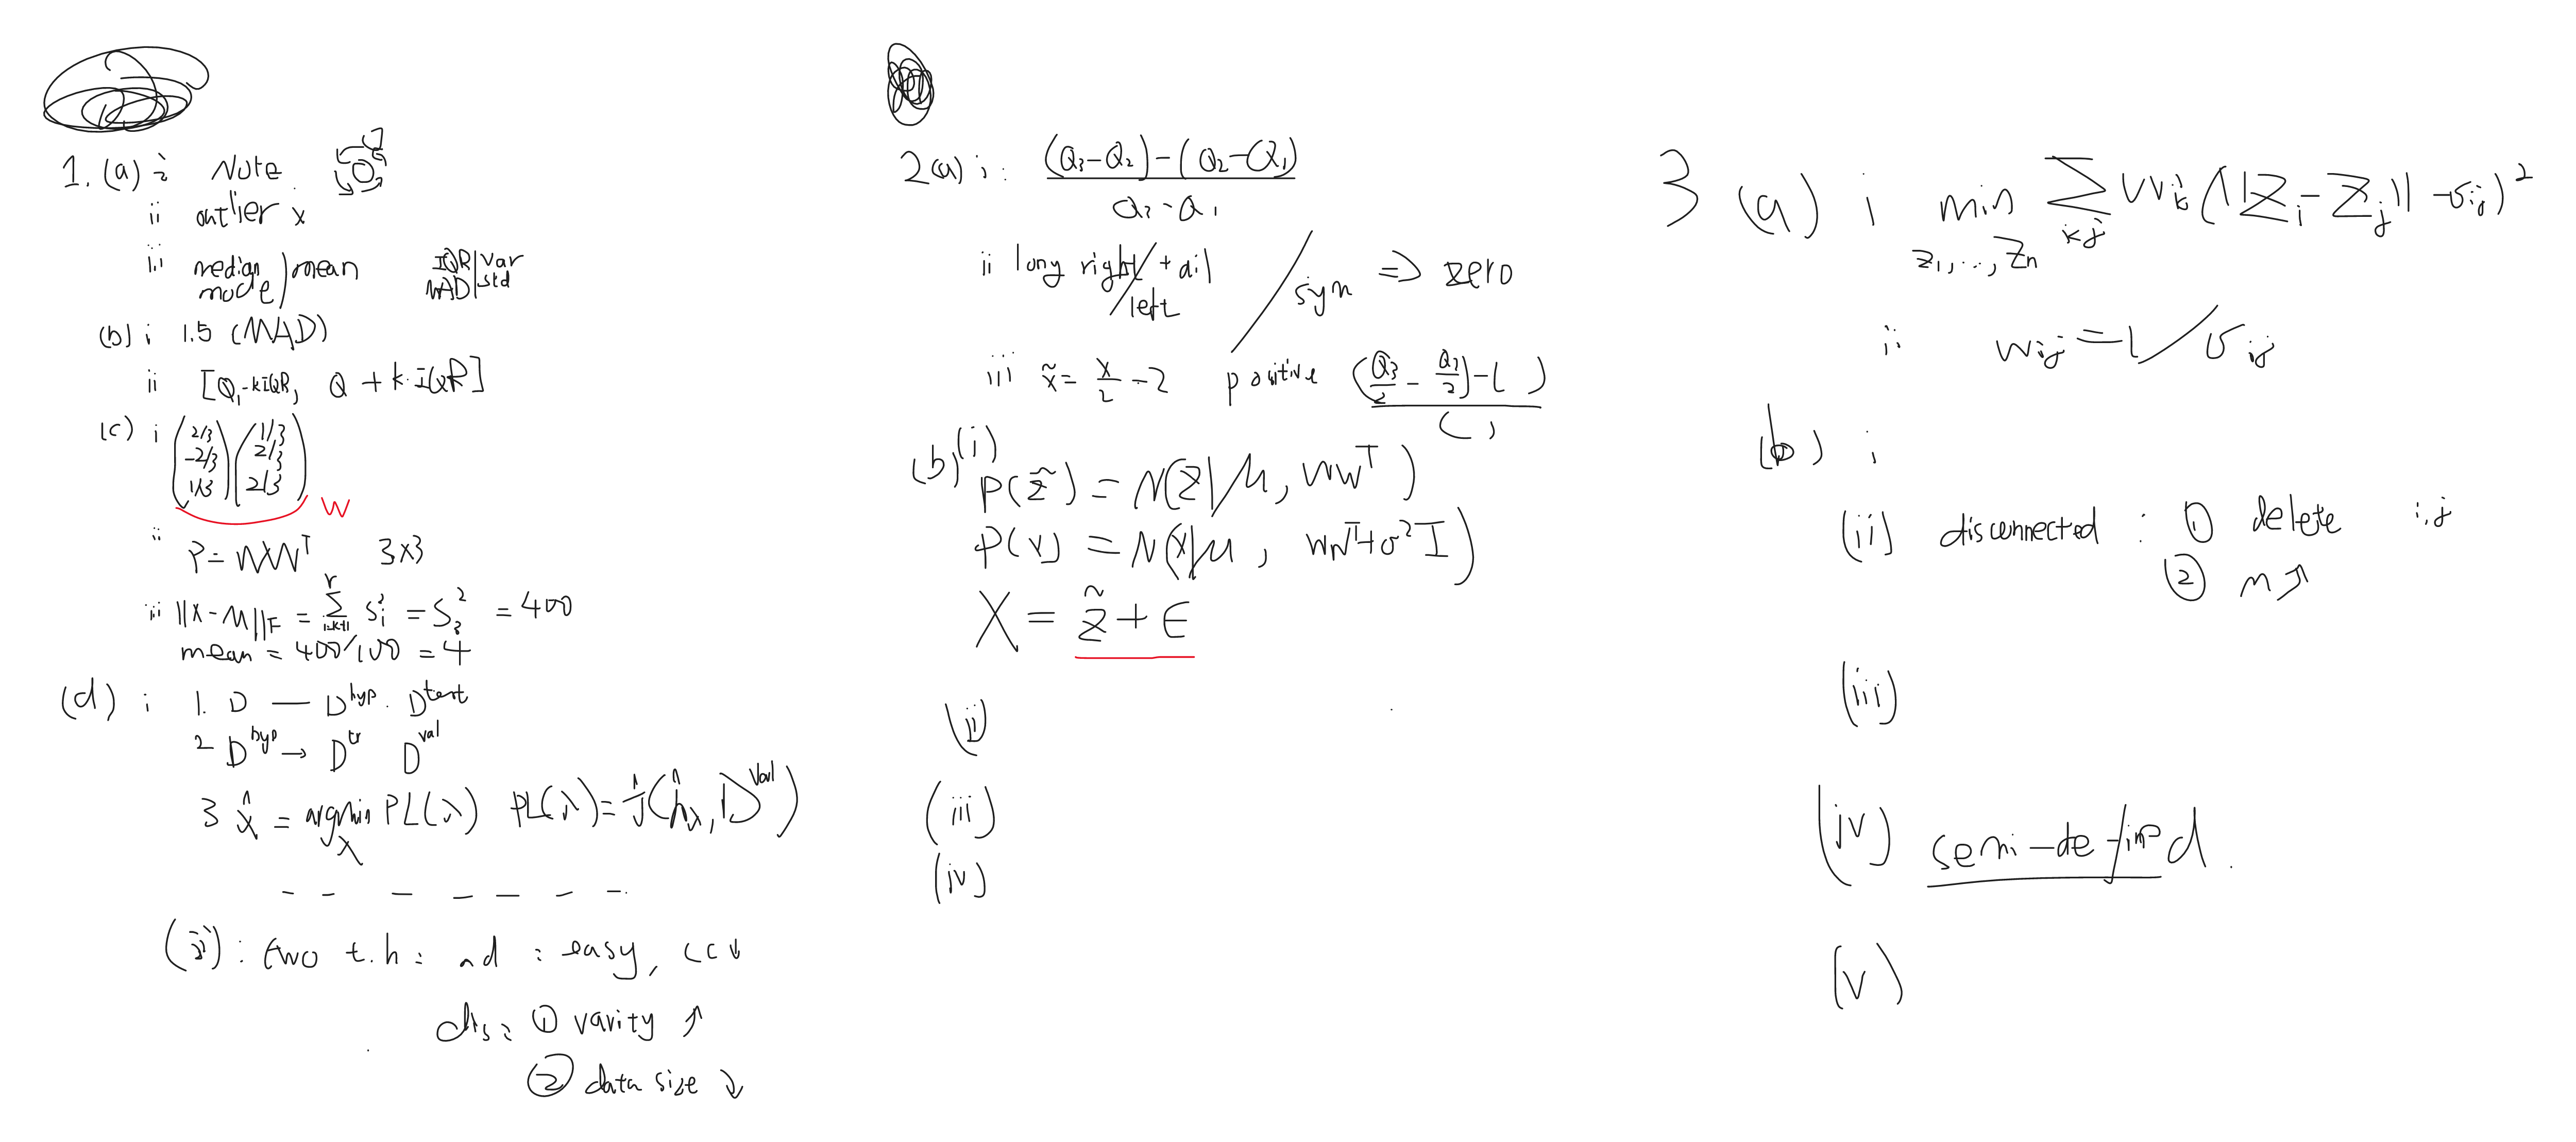 1. (a) i Note
ii outlier x
iii median / mean IQR | var
mode MAD | std
(b) i 1.5 (MAD)
ii [Q₁-kIQR, Q + k.IQR]
(c) i (2/3 -2/3 1/3) (1/3 2/3 2/3)
W
ii P = WWᵀ 3x3
iii ||X-M||F = Σ Sᵢ² = S₃² = 400
mean = 400/100 = 4
(d) i 1. D — D^hyp. D^test
2 D^hyp → D^tr D^val
3 λ̂ = argmin PL(λ) PL(λ) = J(ĥλ, D^val)
λ
(ii): two t.h: ad : easy, cc↓
dis: ① varity ↑
② data size ↓
2(a) i: (Q₃-Q₂)-(Q₂-Q₁)
Q₃-Q₁
ii long right/left tail / sym ⇒ zero
iii x̃ = x/2 - 2 positive (Q₃/2 - Q₂/2)-( )
( )
(b) (i) P(z̃) = N(z̃|μ, WWᵀ)
P(x) = N(x|μ, WWᵀ+σ²I)
X = z̃ + ϵ
(ii)
(iii)
(iv)
3 (a) i min Σ wᵢⱼ(||Zᵢ-Zⱼ|| -σᵢⱼ)²
z₁,...,Zₙ i<j
ii wᵢⱼ = 1/σᵢⱼ
(b) i
(ii) disconnected : ① delete i,j
② n↑
(iii)
(iv)
(v)